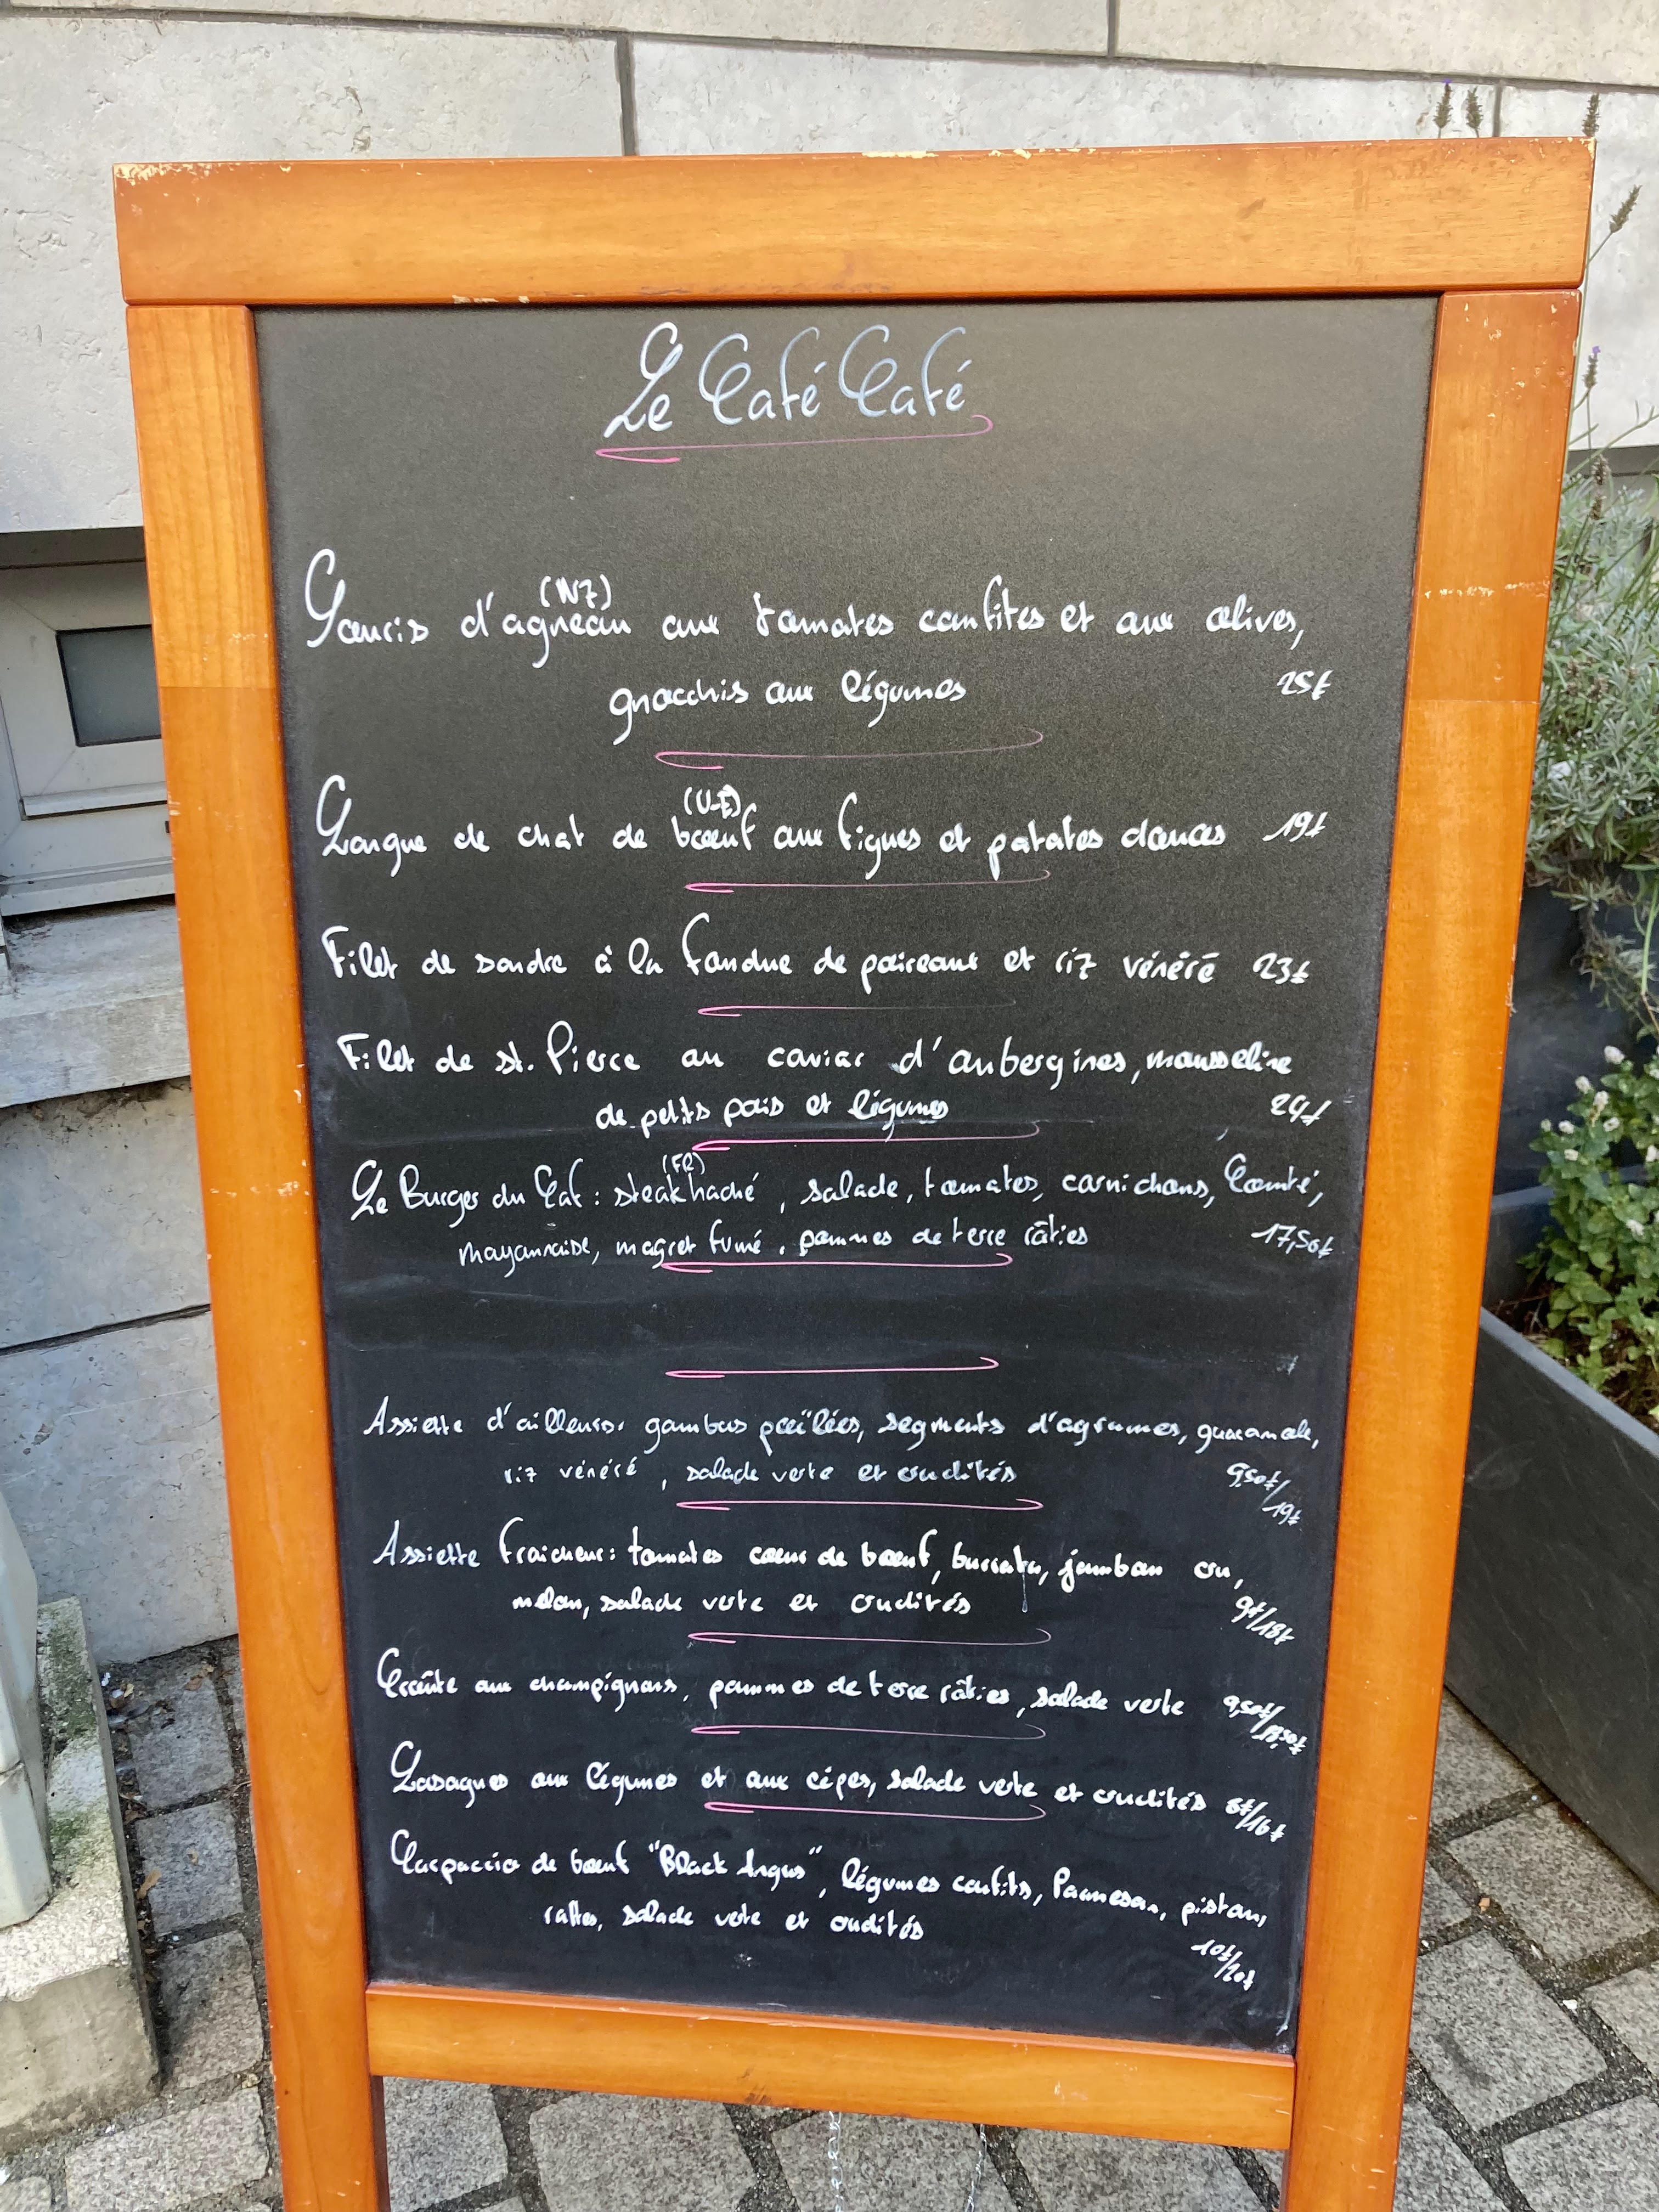 Le Café Café
(NZ)
Souris d'agneau aux tomates confites et aux olives,
gnocchis aux légumes 25€
(U-E)
Langue de chat de boeuf aux figues et patates douces 19€
Filet de sandre à la fondue de poireaux et riz vénéré 23€
Filet de st. Pierre au caviar d'aubergines, mousseline
de petits pois et légumes 24€
(FR)
Le Burger du Caf : steak haché, salade, tomates, cornichons, Comté,
mayonnaise, magret fumé, pommes de terre rôties 17,50€
Assiette d'ailleurs: gambas poêlées, segments d'agrumes, guacamole,
riz vénéré, salade verte et crudités 9,50€/19€
Assiette fraîcheur: tomates coeur de boeuf, burrata, jambon cru,
melon, salade verte et crudités 9€/18€
Croûte aux champignons, pommes de terre rôties, salade verte 9,50€/18,50€
Lasagnes aux légumes et aux cèpes, salade verte et crudités 8€/16€
Carpaccio de boeuf "Black Angus", légumes confits, Parmesan, pistou,
rattes, salade verte et crudités
10€/20€